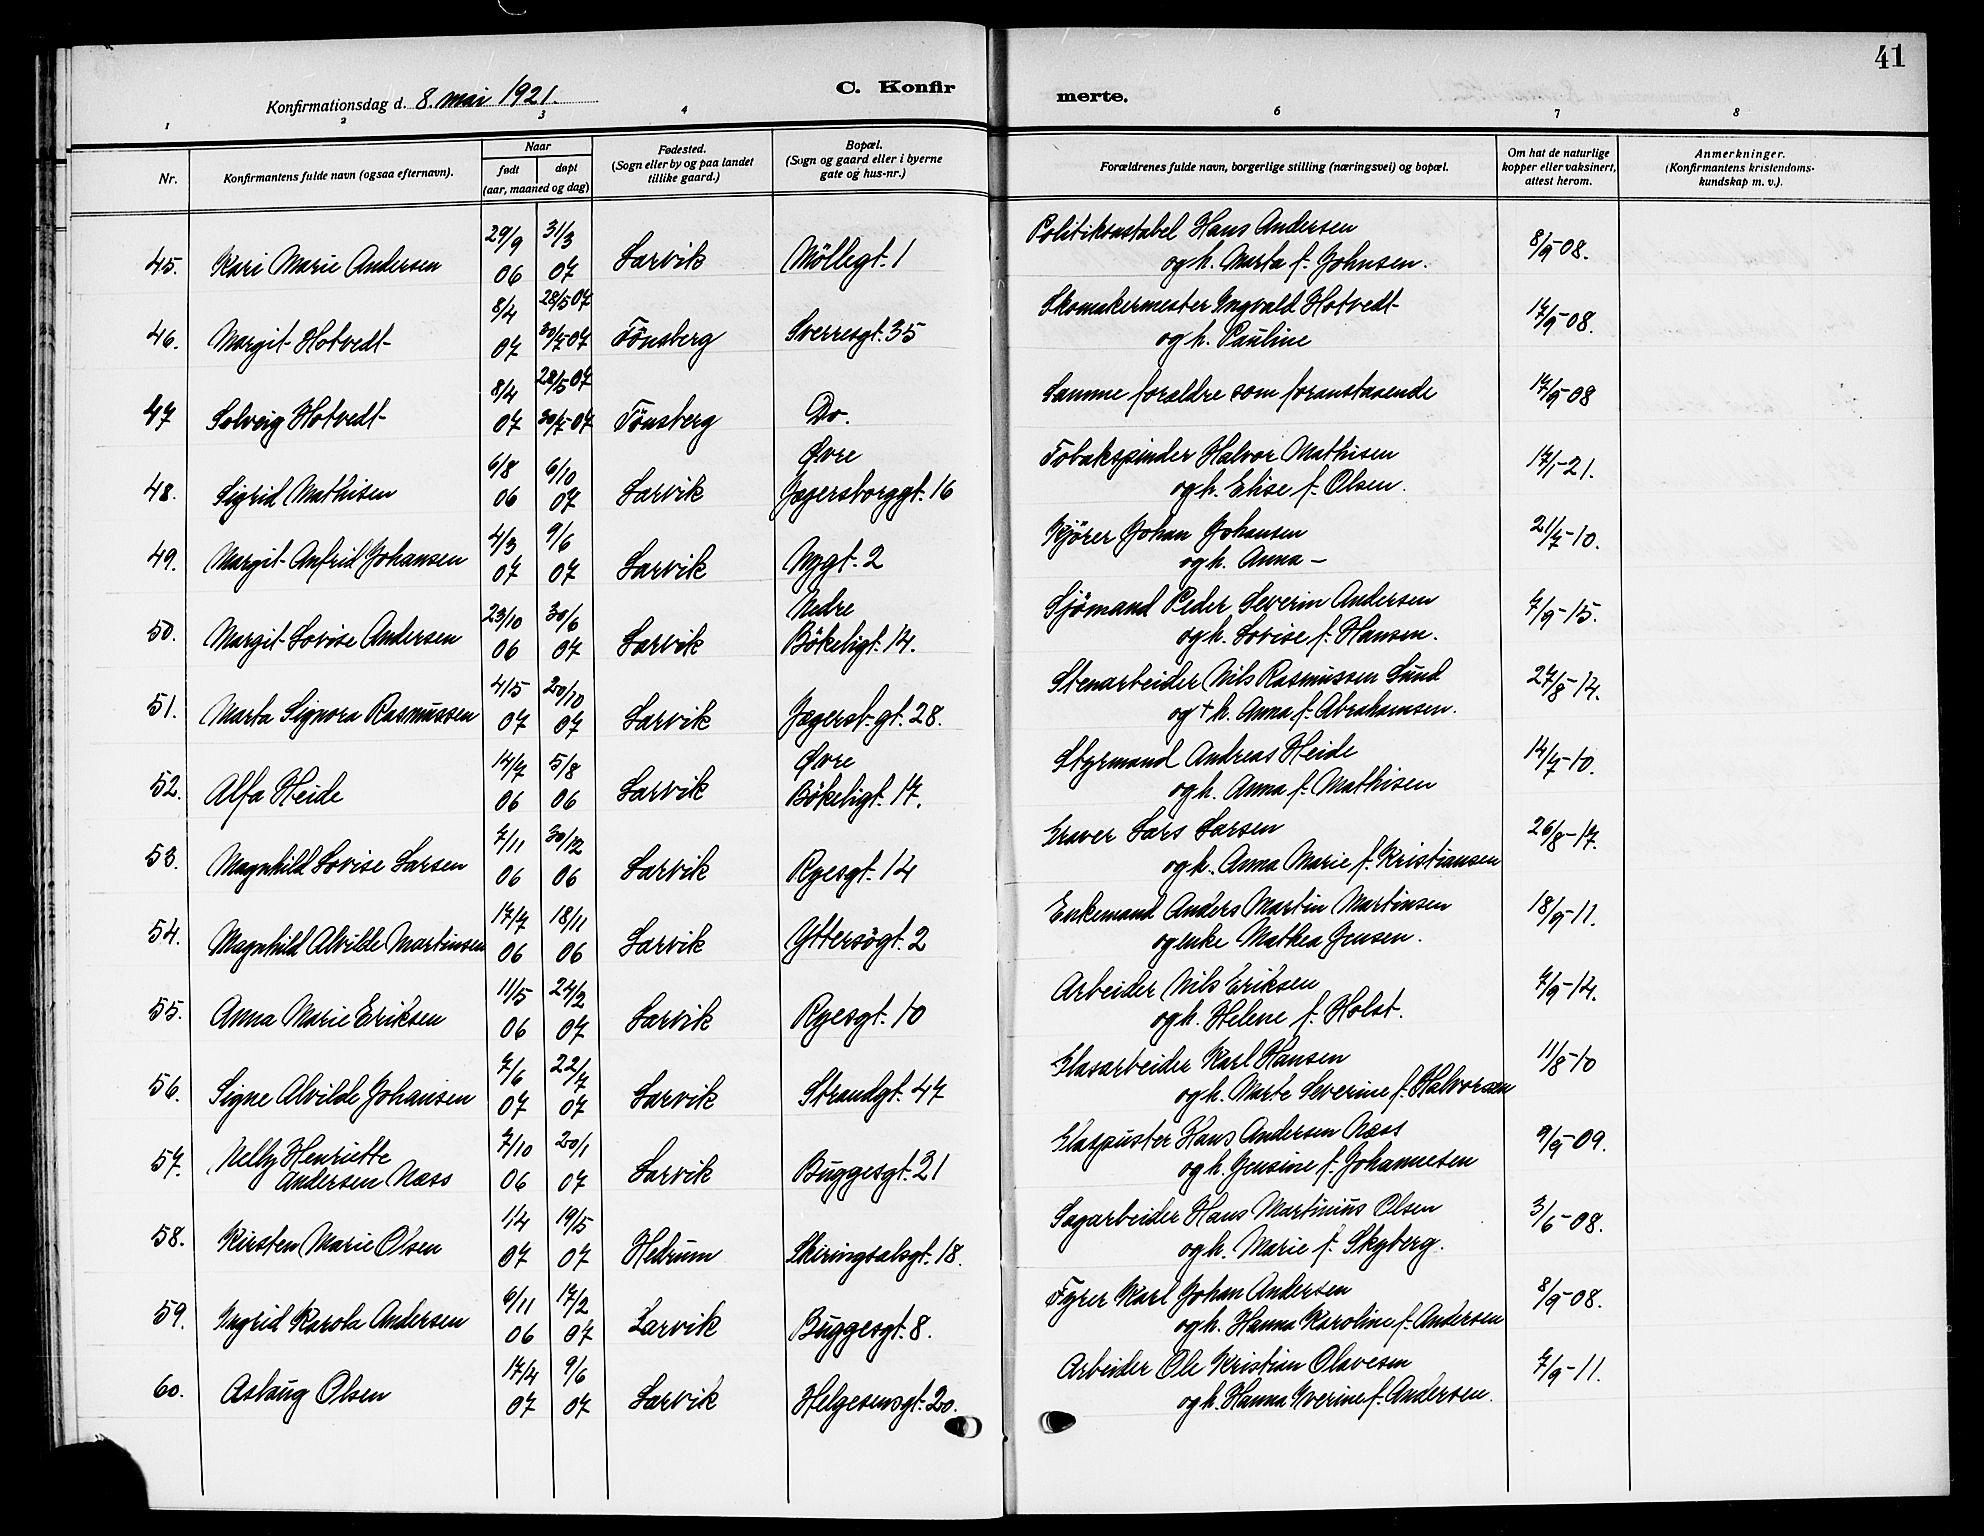 41
Konfirmationsdag d. 8. mai 1921.
C. Konfirmerte.
1 2 3 4 6 7 8
Nr.
Konfirmantens fulde navn (ogsaa efternavn).
Naar
født døpt
(aar, maaned og dag)
Fødested.
(Sogn eller by og paa landet
tillike gaard.)
Bopæl.
(Sogn og gaard eller i byerne
gate og hus-nr.)
Forældrenes fulde navn, borgerlige stilling (næringsvei) og bopæl.
Om hat de naturlige
kopper eller vaksinert,
attest herom.
Anmerkninger.
(Konfirmantens kristendoms-
kundskap m. v.).
45. Kari Marie Andersen 29/9 06 31/3 07 Larvik Möllegt. 1 Politikonstabel Hans Andersen
og h. Marta f. Johnsen. 8/9-08.
46. Margit Hotvedt 8/4 07 28/5 07 30/7-07 Tönsberg Sverresgt. 35 Skomakermester Ingvald Hotvedt
og h. Pauline 17/9-08.
47 Solveig Hotvedt 8/4 07 28/5 07 30/7-07 Tönsberg Do. Samme forældre som foranstaaende 17/9-08
48. Sigrid Mathisen 6/8 06 6/10 07 Larvik Øvre
Jægersborggt. 16 Tobakspinder Halvor Mathisen
og h. Elise f. Olsen. 17/1-21.
49. Margit Anfrid Johansen 4/3 07 9/6 07 Larvik Nygt. 2 Kjörer Johan Johansen
og h. Anna – 21/7-10.
50. Margit Lovise Andersen 23/10 06 30/6 07 Larvik Nedre
Bökeligt. 14. Sjömand Peder Severin Andersen
og h. Lovise f. Hansen. 7/9-15.
51. Marta Signora Rasmussen 4/5 07 20/10 07 Larvik Jægersb-gt. 28. Stenarbeider Nils Rasmussen Lund
og + h. Anna f. Abrahamsen. 27/8-14.
52. Alfa Heide 14/7 06 5/8 06 Larvik Øvre
Bökeligt. 17. Styrmand Andreas Heide
og h. Anna f. Mathisen 14/7-10.
53. Magnhild Lovise Larsen 7/11 06 30/12 06 Larvik Ryesgt. 14 Graver Lars Larsen
og h. Anna Marie f. Kristiansen 26/8-17.
54. Magnhild Alvilde Martinsen 17/7 06 18/11 06 Larvik Yttersögt. 2 Enkemand Anders Martin Martinsen
og enke Mathea Jensen. 18/9-11.
55. Anna Marie Eriksen 11/5 06 24/2 07 Larvik Ryesgt. 10 Arbeider Nils Eriksen
og h. Helene f. Holst. 7/9-14.
56. Signe Alvilde Johansen 7/6 07 22/7 07 Larvik Strandgt. 47 Glasarbeider Karl Hansen
og h. Marte Severine f. Halvorsen 11/8-10
57. Nelly Henriette
Andersen Næss 7/10 06 20/1 07 Larvik Buggesgt. 21 Glaspuster Hans Andersen Næss
og h. Jensine f. Johannesen 9/9-09.
58. Kirsten Marie Olsen 1/4 07 19/5 07 Hedrum Skiringsalsgt. 18. Sagarbeider Hans Martinius Olsen
og h. Marie f. Skyberg. 3/6-08.
59. Ingrid Karola Andersen 6/11 06 17/2 07 Larvik Buggesgt. 8. Fyrer Karl Johan Andersen
og h. Hanna Karoline f. Andersen 8/9-08.
60. Aslaug Olsen 17/4 07 9/6 07 Larvik Helgesensgt. 20. Arbeider Ole Kristian Olavesen
og h. Hanna Iverine f. Andersen. 7/9-11.